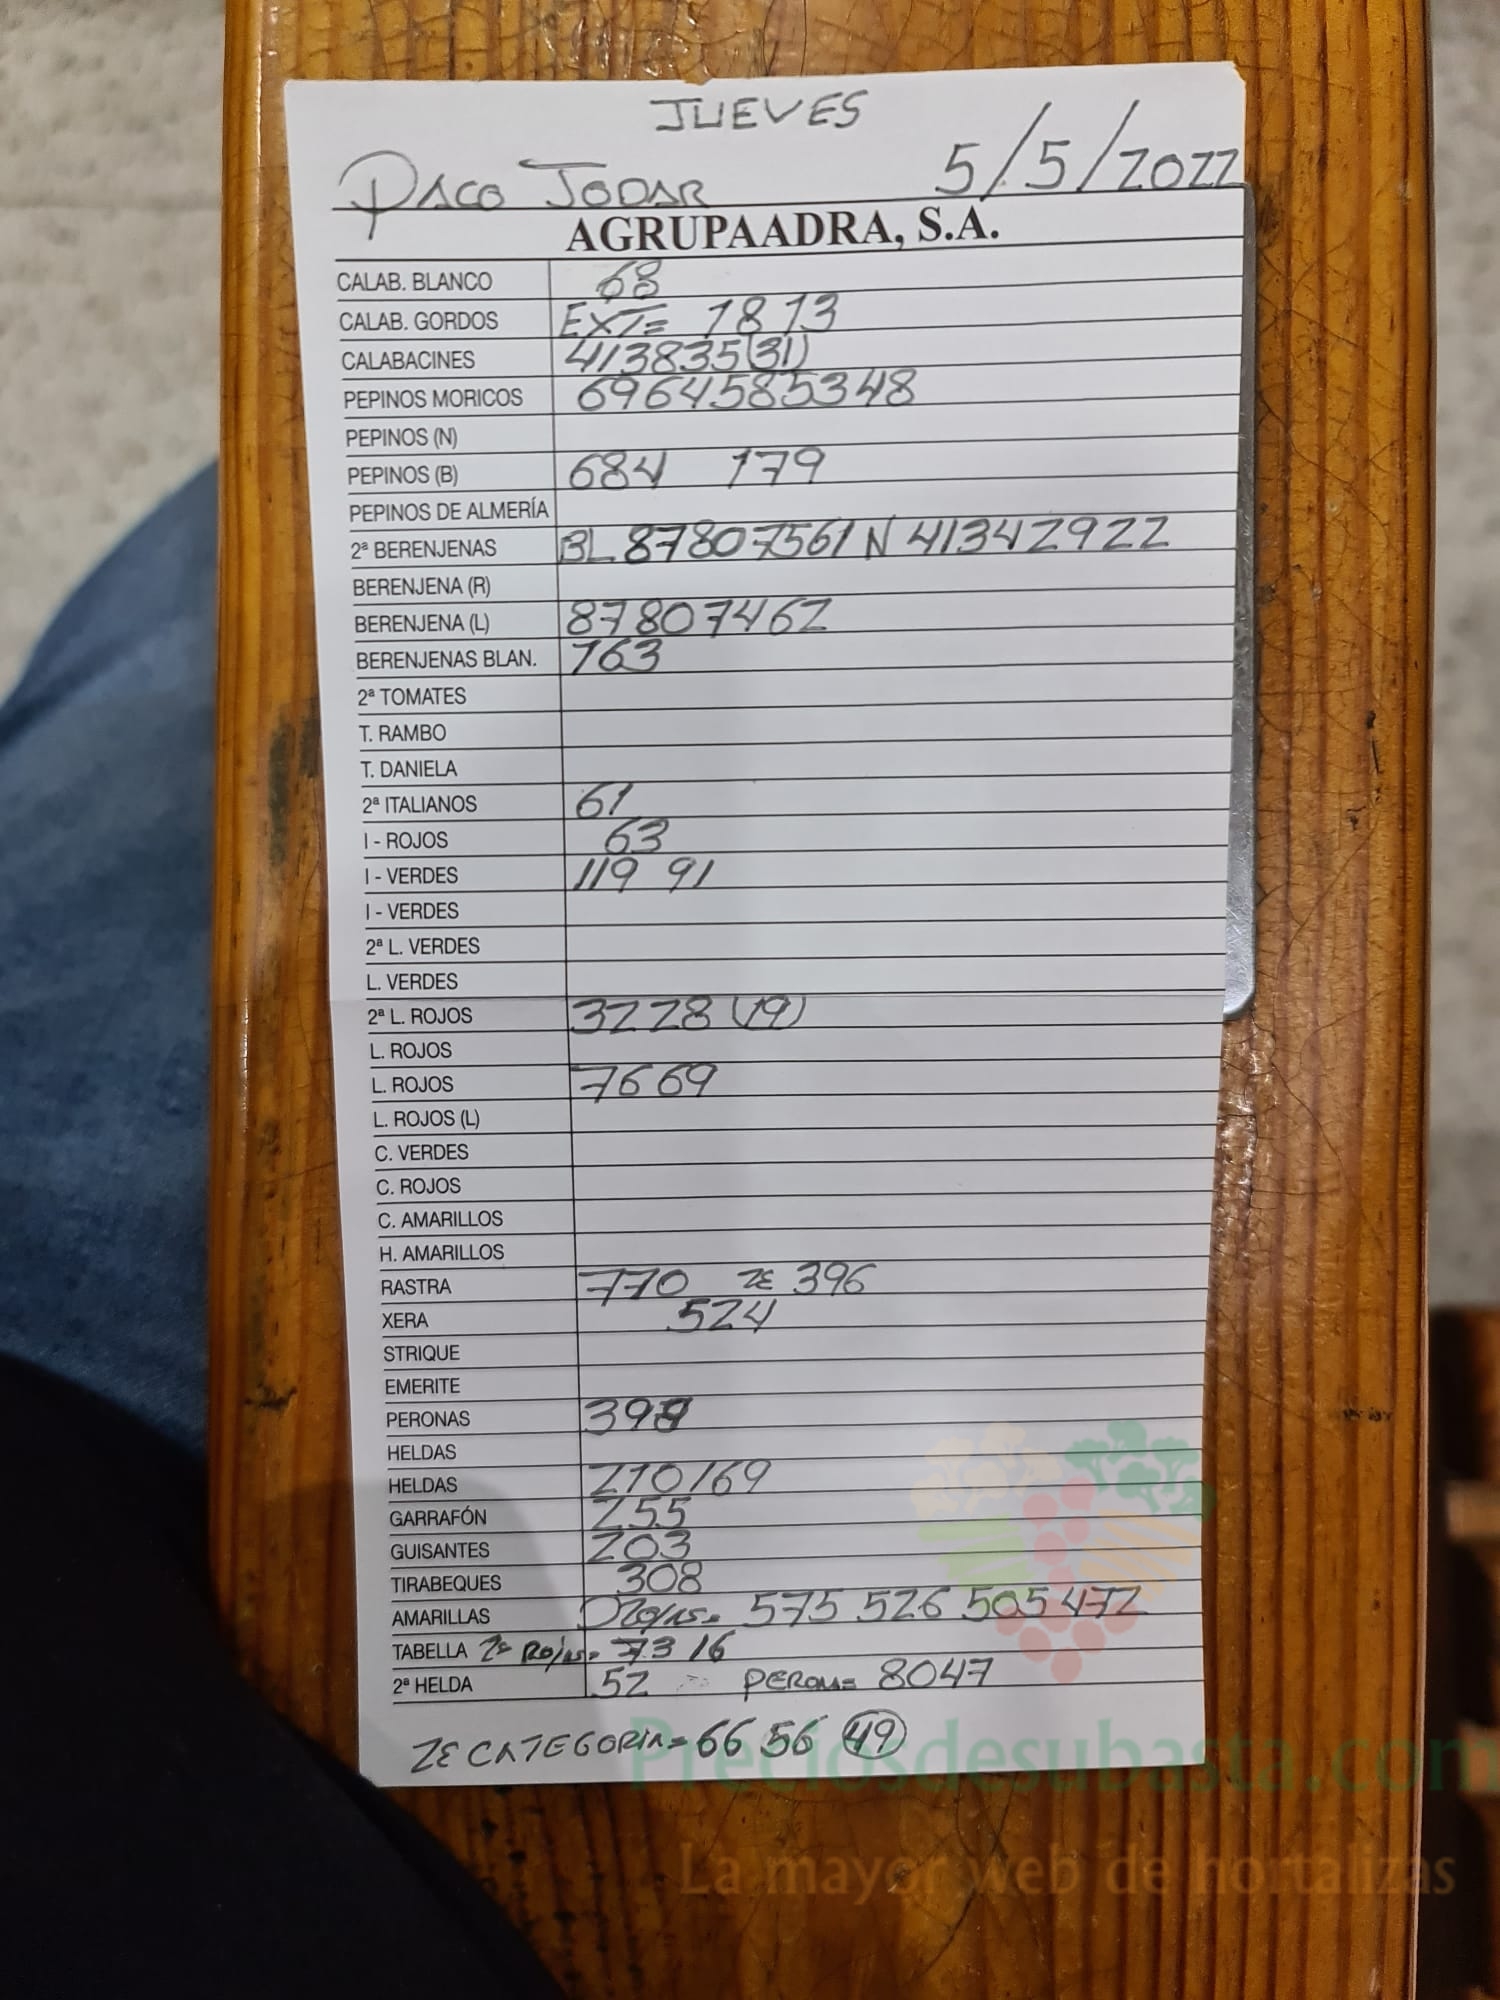 JUEVES
PACO JODAR 5/5/2022
AGRUPAADRA, S.A.
CALAB. BLANCO 68
CALAB. GORDOS EXT= 18 13
CALABACINES 413835(31)
PEPINOS MORICOS 69645853 48
PEPINOS (N)
PEPINOS (B) 684 179
PEPINOS DE ALMERÍA
2ª BERENJENAS BL 87807561 N 41342922
BERENJENA (R)
BERENJENA (L) 87807462
BERENJENAS BLAN. 763
2ª TOMATES
T. RAMBO
T. DANIELA
2ª ITALIANOS 61
I - ROJOS 63
I - VERDES 119 91
I - VERDES
2ª L. VERDES
L. VERDES
2ª L. ROJOS 3228 (19)
L. ROJOS
L. ROJOS 7669
L. ROJOS (L)
C. VERDES
C. ROJOS
C. AMARILLOS
H. AMARILLOS
RASTRA 770 2ª 396
XERA 524
STRIQUE
EMERITE
PERONAS
HELDAS
HELDAS 210 169
GARRAFÓN 255
GUISANTES 203
TIRABEQUES 308
AMARILLAS 575 526 505 472
TABELLA 2ª Rojas= 73 16
2ª HELDA 52 PERONA= 8047
2ª CATEGORIA= 66 56 (49)
Preciosdesubasta.com
La mayor web de hortalizas